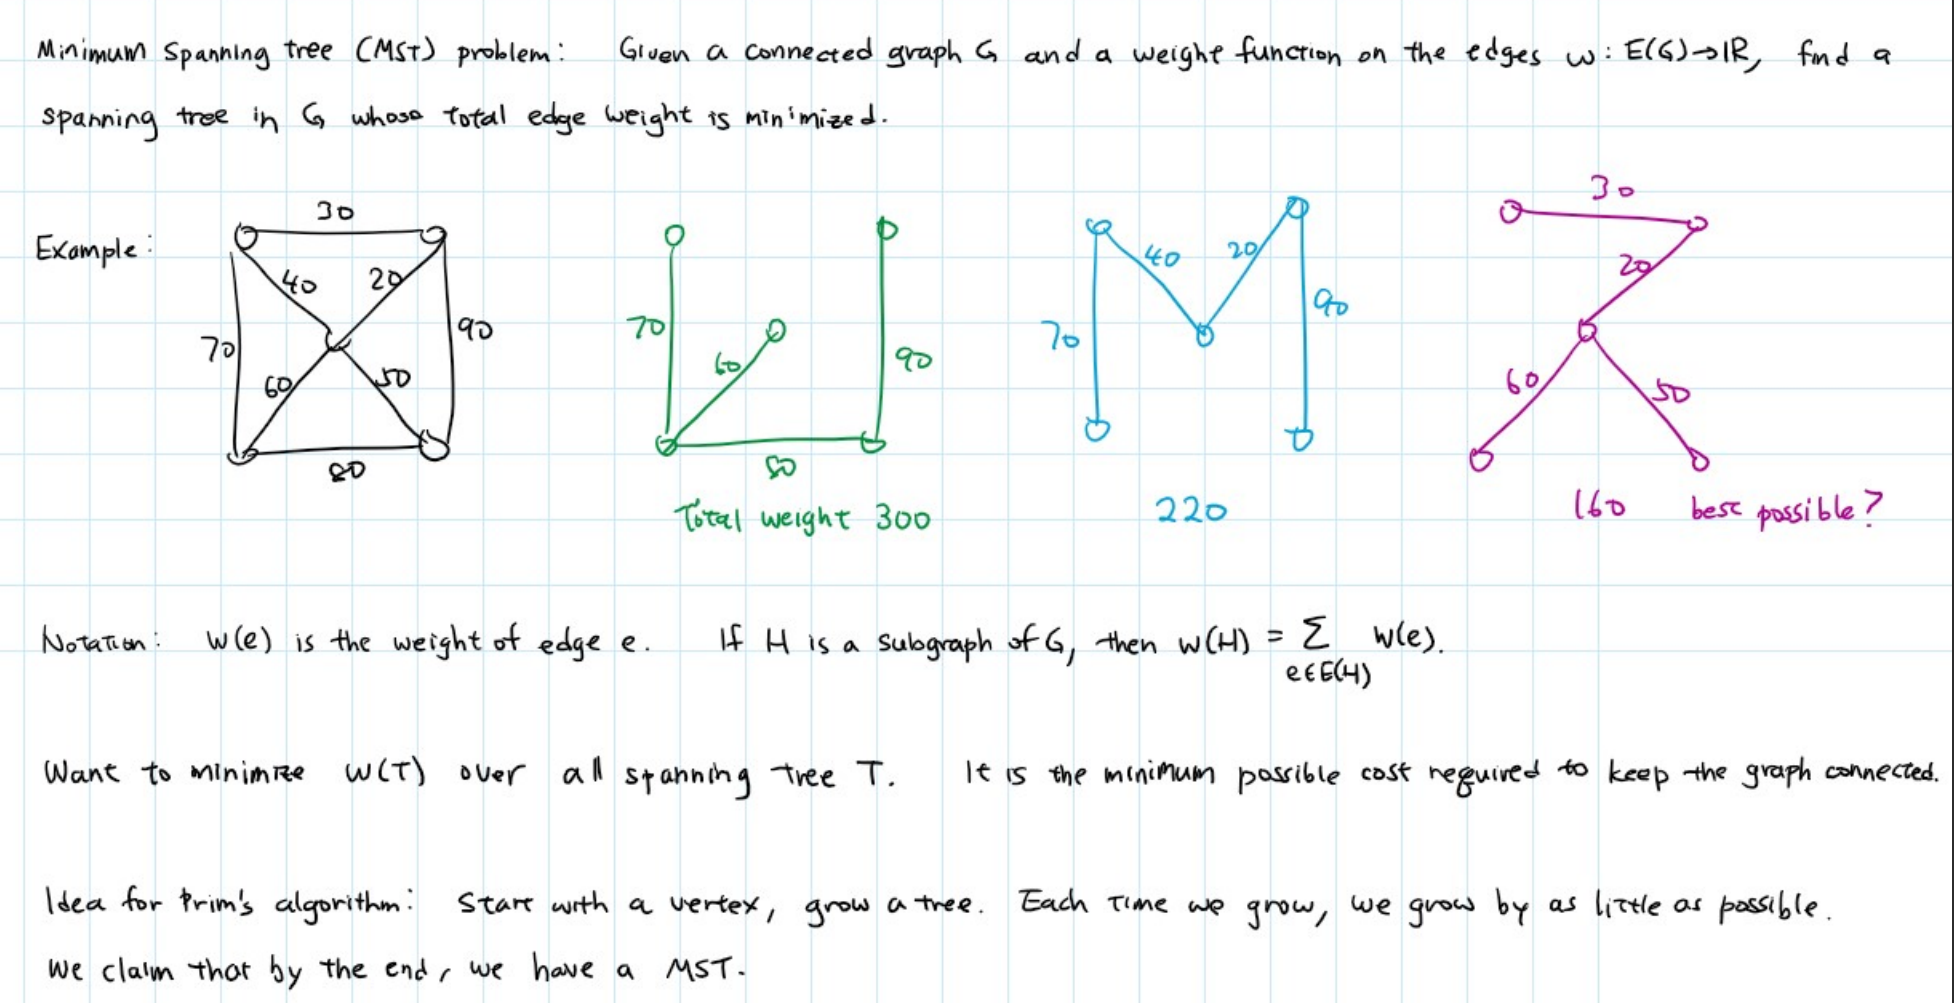 Minimum spanning tree (MST) problem: Given a connected graph G and a weight function on the edges w: E(G)→ℝ, find a
spanning tree in G whose total edge weight is minimized.
Example:
30
40
20
70
90
60
50
80
70
60
90
80
Total weight 300
40
20
70
90
220
30
20
60
50
160 best possible?
Notation: w(e) is the weight of edge e. If H is a subgraph of G, then w(H) = Σ w(e).
e∈E(H)
Want to minimize w(T) over all spanning tree T. It is the minimum possible cost required to keep the graph connected.
Idea for Prim's algorithm: Start with a vertex, grow a tree. Each time we grow, we grow by as little as possible.
We claim that by the end, we have a MST.